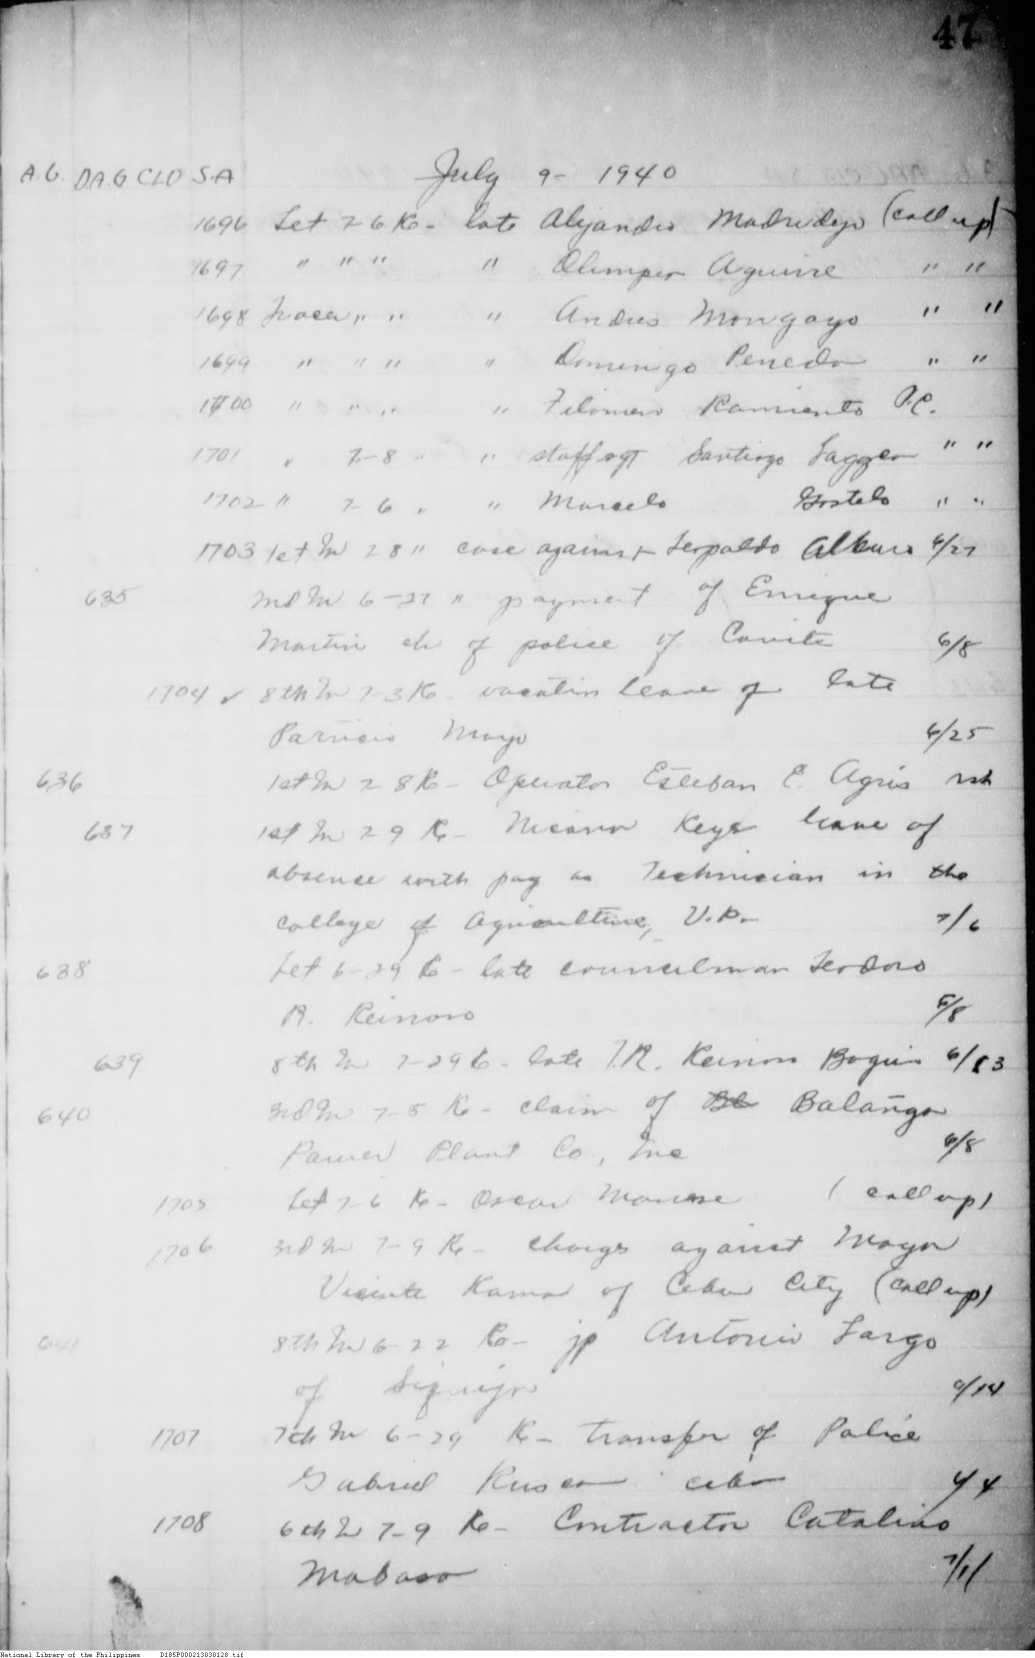 47
A.G. D.A.G CLO S-A July 9- 1940
1696 Let 7-6 Re- late Alejandro Madridejo (call up)
1697 " " " " Olimpio Aguirre " "
1698 " " " Andres Mongayo " "
1699 " " " " Domingo Penedo " "
1700 " " " " Filomeno Ramiento P.C.
1701 " 7-8 " " staff sgt Santiago Lagger " "
1702 " 7-6 " " Marcelo Gostelo " "
1703 1st In 7 8 " case against Leopoldo 6/27
635 2nd In 6-27 " payment of Enrique
Martin ch of police of Cavite 6/8
1704 8th In 7-3 Re- vacation leave of late
Patricio Mayo 6/25
636 1st In 7 8 Re- Operator Esteban E. Agris
637 1st In 7 9 Re- Nicanor Keyr leave of
absence with pay as Technician in the
college of Agriculture, U.P. 7/6
638 Let 6-29 Re- late councilman Teodoro
R. Reinoso 6/8
639 8th In 7-29 Re- late T.R. Reinoso 6/13
640 3rd In 7-5 Re- claim of Balanga
Power Plant Co., Inc 6/8
1705 Let 7-6 Re- Oscar (call up)
1706 3rd In 7-9 Re- charges against Mayor
Vicente Rama of Cebu City (call up)
641 8th In 6-22 Re- jp Antonio Largo
of Siquijor 6/14
1707 7th In 6-29 Re- transfer of Police
Gabriel Cebu 4/4
1708 6th In 7-9 Re- Contractor Catalino
Mabaso 7/11
National Library of the Philippines D185P000213030128.tif